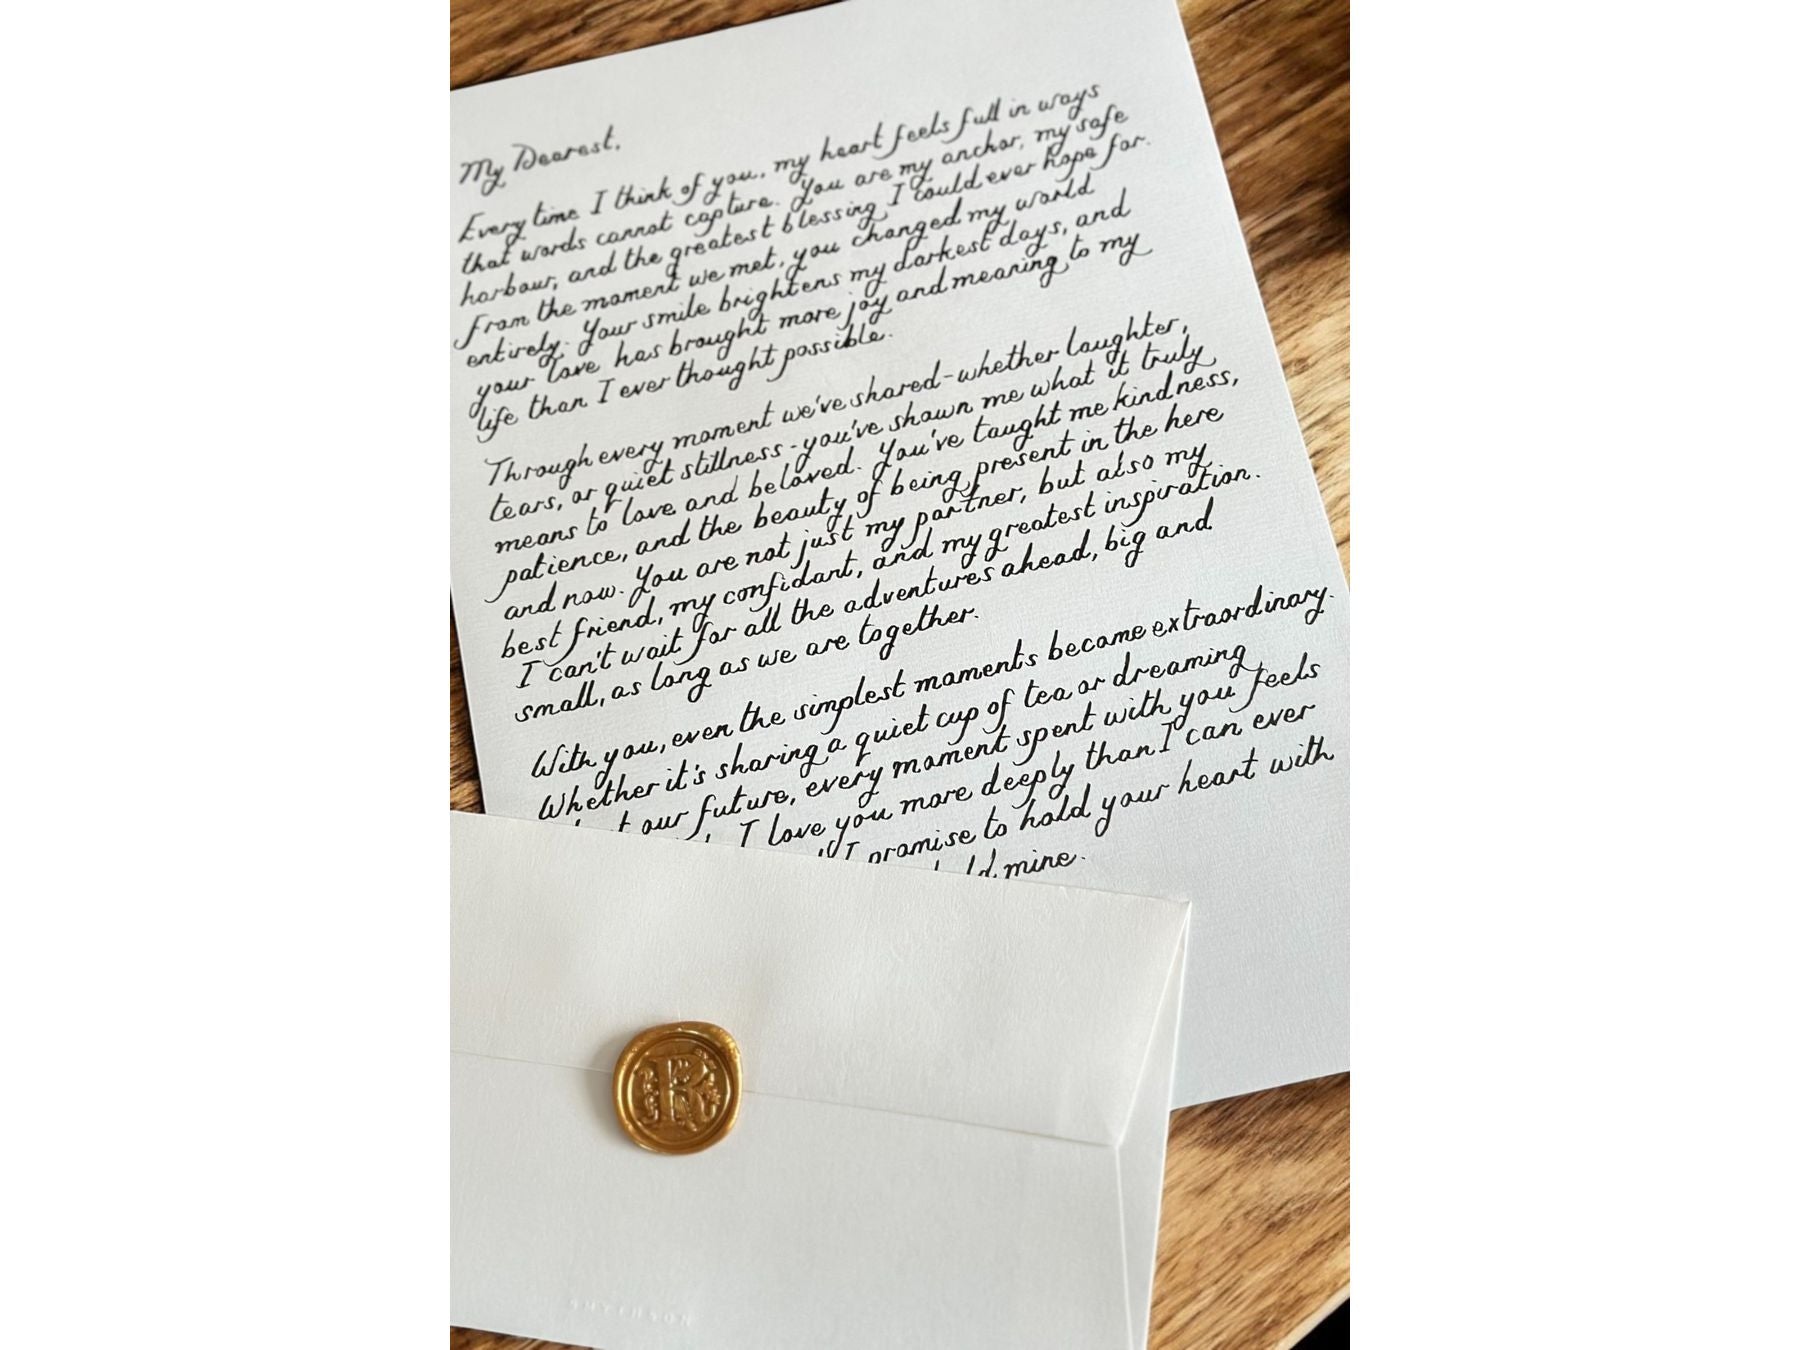 My Dearest,
Every time I think of you, my heart feels full in ways
that words cannot capture. You are my anchor, my safe
harbour, and the greatest blessing I could ever hope for.
From the moment we met, you changed my world
entirely. Your smile brightens my darkest days, and
your love has brought more joy and meaning to my
life than I ever thought possible.
Through every moment we've shared - whether laughter,
tears, or quiet stillness - you've shown me what it truly
means to love and be loved. You've taught me kindness,
patience, and the beauty of being present in the here
and now. You are not just my partner, but also my
best friend, my confidant, and my greatest inspiration.
I can't wait for all the adventures ahead, big and
small, as long as we are together.
With you, even the simplest moments become extraordinary.
Whether it's sharing a quiet cup of tea or dreaming
our future, every moment spent with you feels
I love you more deeply than I can ever
I promise to hold your heart with
mine.
R
SMYTHSON